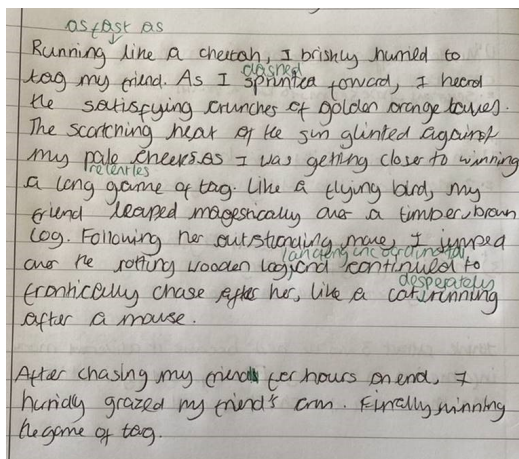 as fast as
Running like a cheetah, I briskly hurried to
dashed
tag my friend. As I sprinted forward, I heard
the satisfying crunches of golden orange leaves.
The scortching heat of the sun glinted against
my pale cheeks as I was getting closer to winning
relentles
a long game of tag. Like a flying bird, my
friend leaped magestically over a timber brown
log. Following her outstanding move, I jumped
landing uncoordinated
over the rotting wooden log, and continued to
desperately
frantically chase after her, like a cat running
after a mouse.
After chasing my friend for hours on end, I
huridly grazed my friend's arm. Finally winning
the game of tag.